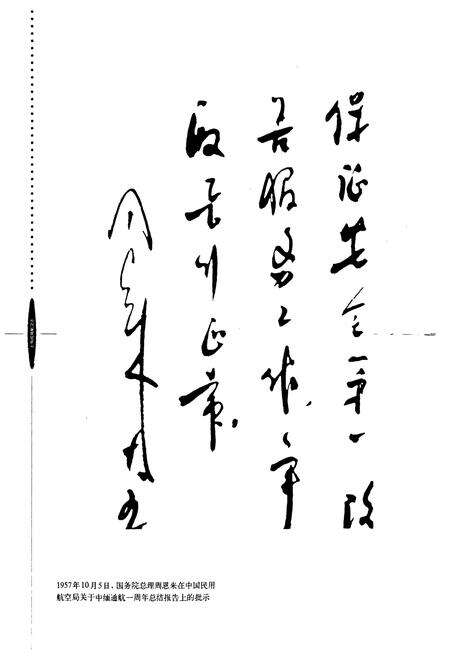 保证安全第一改
善服务工作,争
取飞行正常.
周恩来
1957年10月5日、国务院总理周恩来在中国民用
航空局关于中缅通航一周年总结报告上的批示